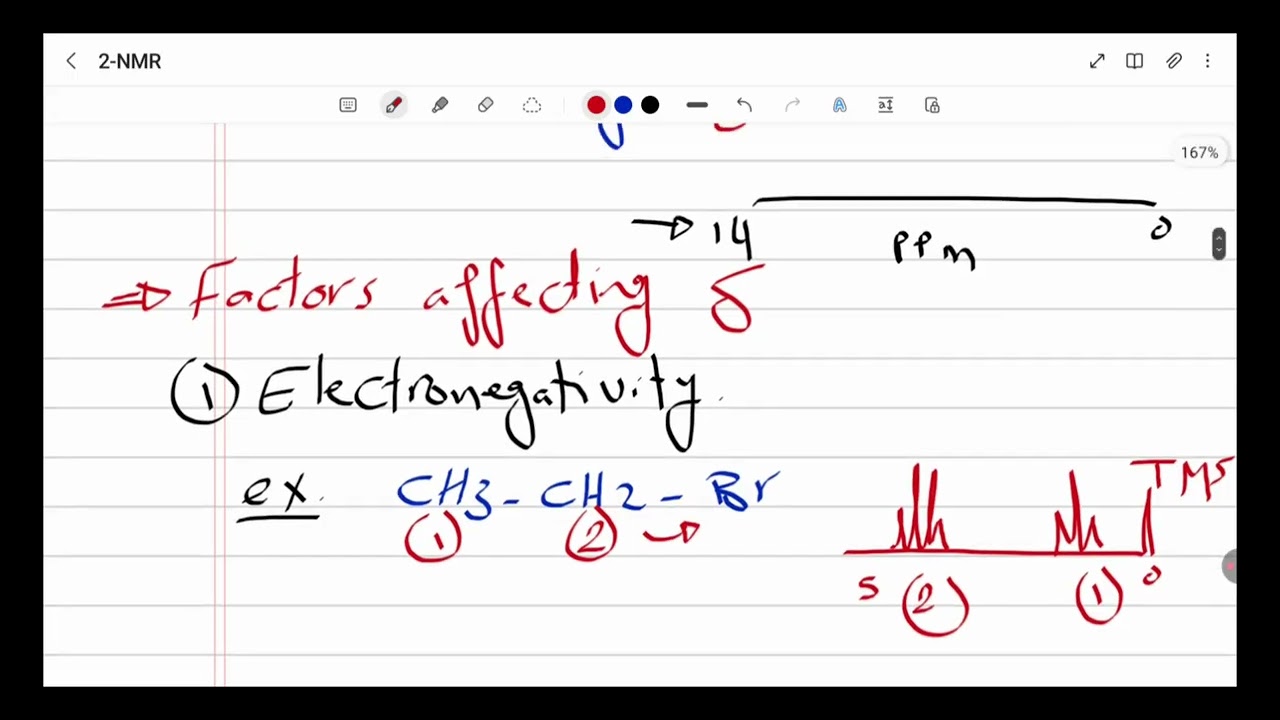 2-NMR
167%
→ 14 PPm 0
⇒ Factors affecting δ
① Electronegativity.
ex. CH3 - CH2 - Br
① ② →
TMS
5 ② ① 0